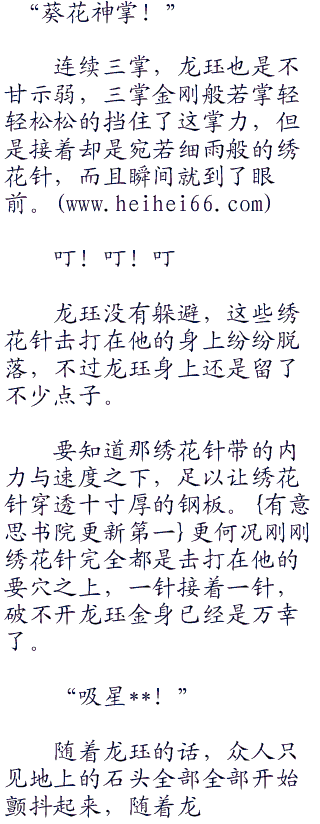 “葵花神掌！”
连续三掌，龙珏也是不
甘示弱，三掌金刚般若掌轻
轻松松的挡住了这掌力，但
是接着却是宛若细雨般的绣
花针，而且瞬间就到了眼
前。(www.heihei66.com)
叮！叮！叮
龙珏没有躲避，这些绣
花针击打在他的身上纷纷脱
落，不过龙珏身上还是留了
不少点子。
要知道那绣花针带的内
力与速度之下，足以让绣花
针穿透十寸厚的钢板。{有意
思书院更新第一}更何况刚刚
绣花针完全都是击打在他的
要穴之上，一针接着一针，
破不开龙珏金身已经是万幸
了。
“吸星**！”
随着龙珏的话，众人只
见地上的石头全部全部开始
颤抖起来，随着龙